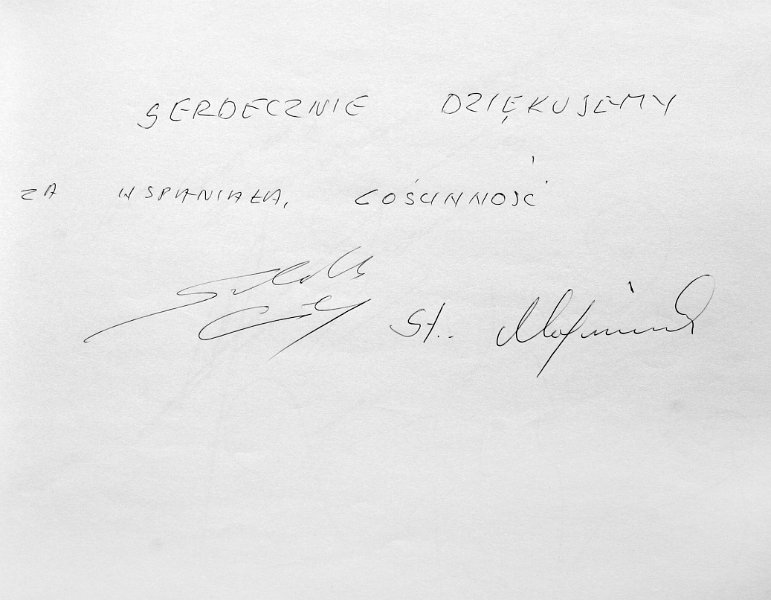 SERDECZNIE DZIĘKUJEMY
ZA WSPANIAŁĄ GOŚCINNOŚĆ
St.